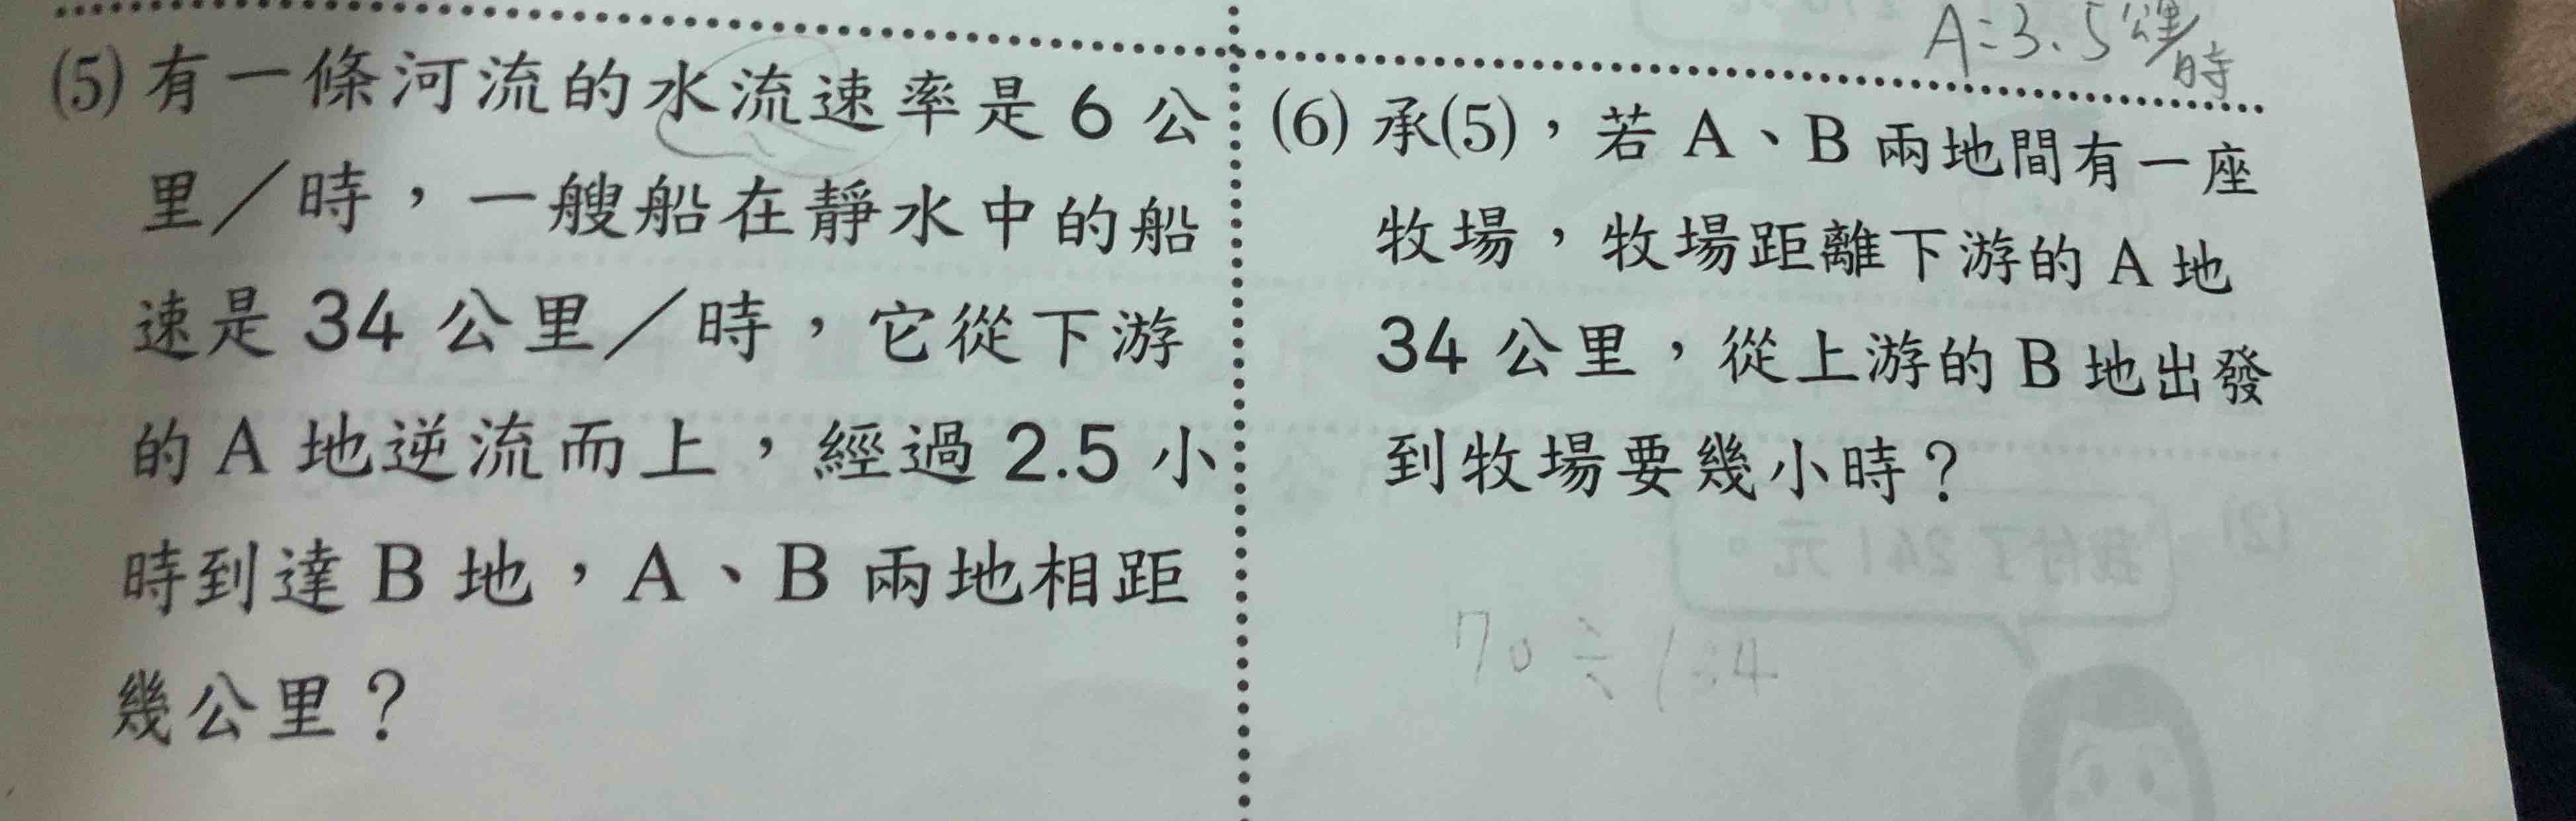 A=3.5公里/時
(5)有一條河流的水流速率是6公
里／時，一艘船在靜水中的船
速是34公里／時，它從下游
的A地逆流而上，經過2.5小
時到達B地，A、B兩地相距
幾公里？
(6)承(5)，若A、B兩地間有一座
牧場，牧場距離下游的A地
34公里，從上游的B地出發
到牧場要幾小時？
我付了241元。
(2)
70÷